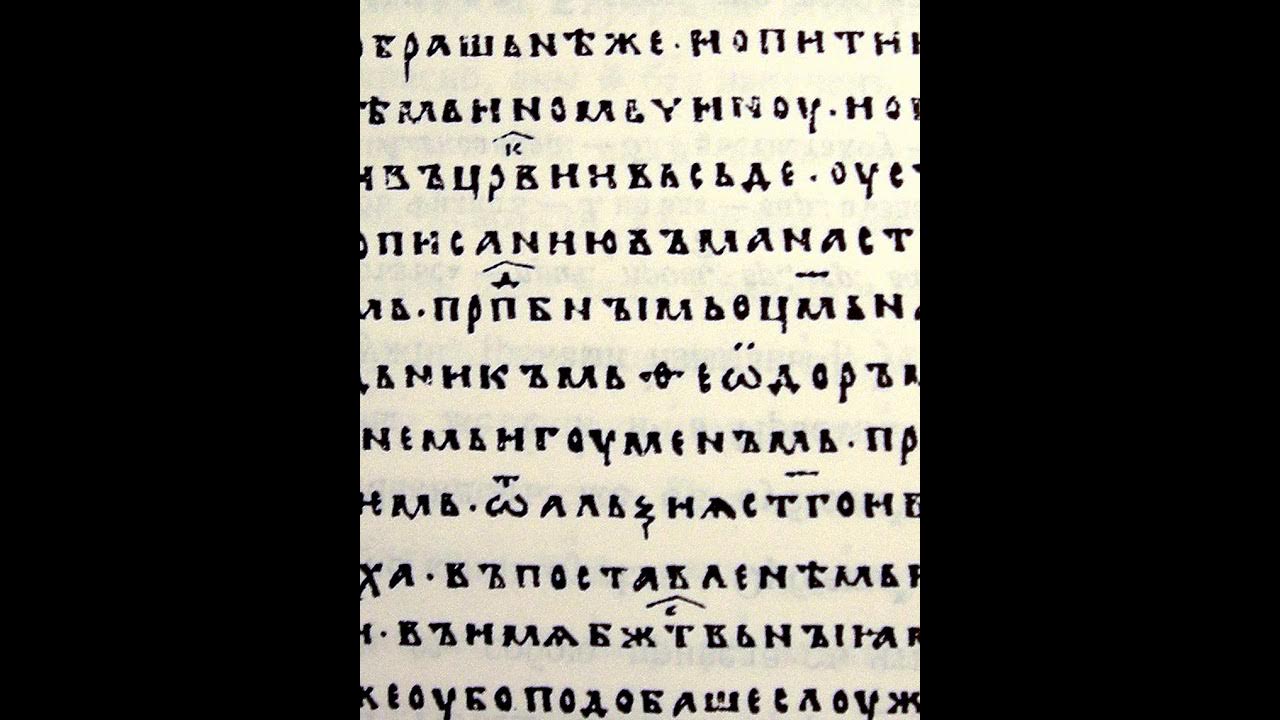 обрашьнѣже·нопитни
ѣмьнномеүнноу·но
нвъцр҃квннвьсьде·оуст
описанию въманаст
мь·прп҃дбнꙑмьоц҃мьна
дьникъмь·ѳеѡ̈доръм
немьнгоуменъмь·пр
нмь·ѿальѯиѧст҃гонв
ха·въпоставленѣмьн
н·въимѧбж҃ствьнꙑꙗ
жеоубоподобашеслоуж